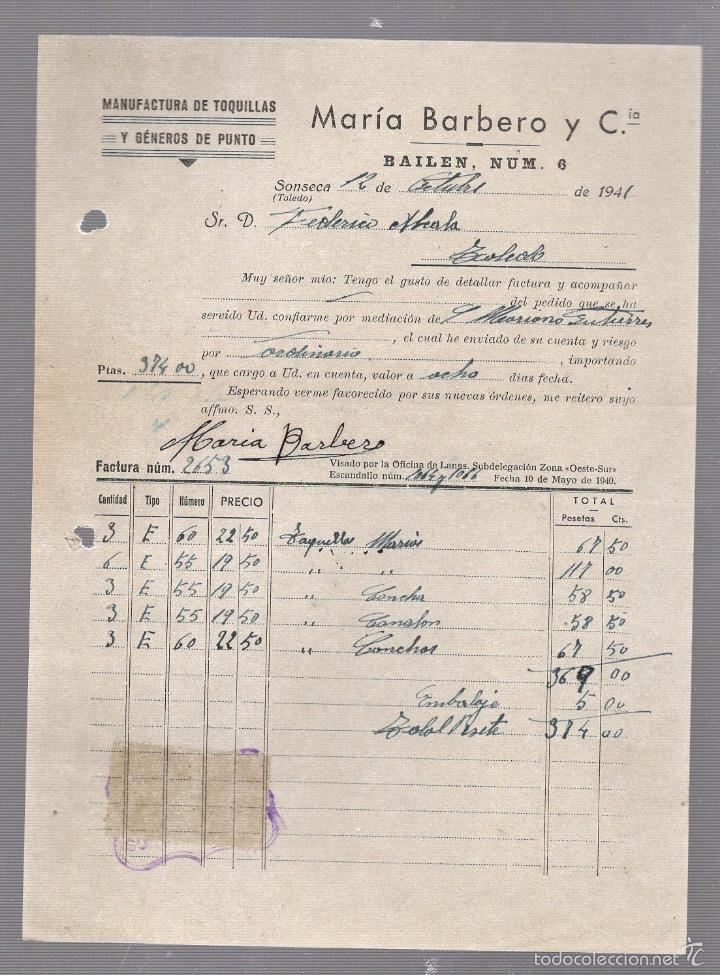 MANUFACTURA DE TOQUILLAS
Y GÉNEROS DE PUNTO
María Barbero y C.ía
BAILEN, NUM. 6
Sonseca 12 de Octubre de 1941
(Toledo)
Sr. D. Federico Alcala
Toledo
Muy señor mio: Tengo el gusto de detallar factura y acompañar
del pedido que se ha
servido Ud. confiarme por mediación de Mariano Gutierres
, el cual he enviado de su cuenta y riesgo
por ordinario, importando
Ptas. 374 00, que cargo a Ud. en cuenta, valor a ocho dias fecha.
Esperando verme favorecido por sus nuevas órdenes, me reitero suyo
affmo. S. S.,
Maria Barbero
Factura núm. 2653
Visado por la Oficina de Lanas. Subdelegación Zona «Oeste-Sur»
Escandallo núm. 1064 y 1066 Fecha 10 de Mayo de 1940.
Cantidad Tipo Número PRECIO TOTAL
Pesetas Cts.
3 E 60 22 50 Toquillas Marias 67 50
6 E 55 19 50 " " 117 00
3 E 55 19 50 " Concha 58 50
3 E 55 19 50 " 58 50
3 E 60 22 50 " Conchas 67 50
369 00
Embalaje 5 00
Total Ptas 374 00
todocoleccion.net